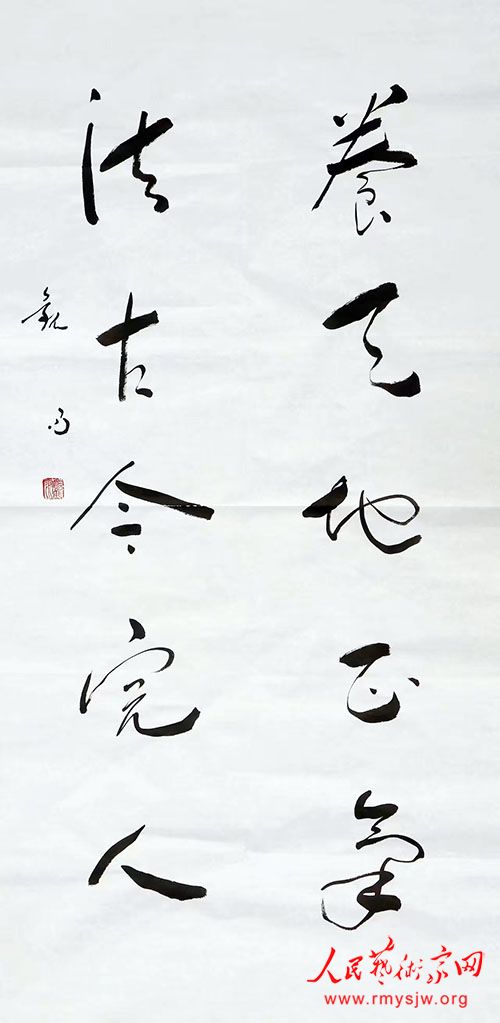 養天地正氣
法古今完人
人民藝術家网
www.rmysjw.org